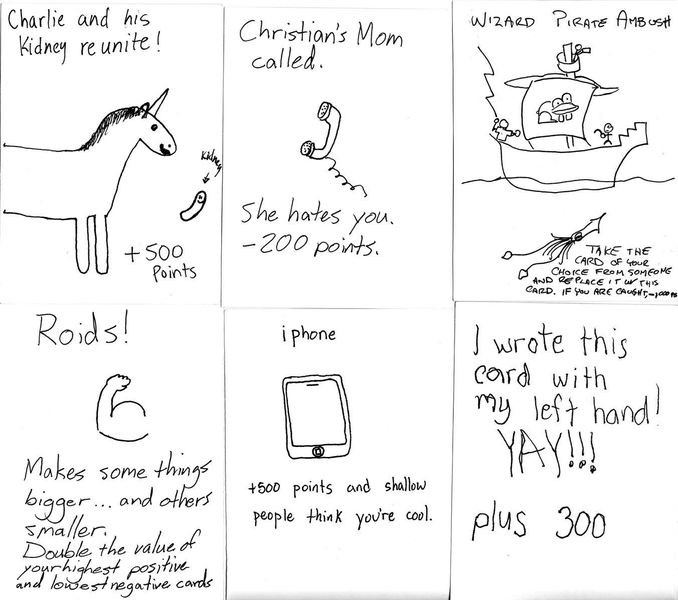 Charlie and his
Kidney reunite!
Kidney
+500
Points
Christian's Mom
called.
She hates you.
-200 points.
WIZARD PIRATE AMBUSH
TAKE THE
CARD OF YOUR
CHOICE FROM SOMEONE
AND REPLACE IT W/ THIS
CARD. IF YOU ARE CAUGHT, -1,000 PTS
Roids!
Makes some things
bigger... and others
smaller.
Double the value of
your highest positive
and lowest negative cards
iphone
+500 points and shallow
people think you're cool.
I wrote this
card with
my left hand!
YAY!!!
plus 300